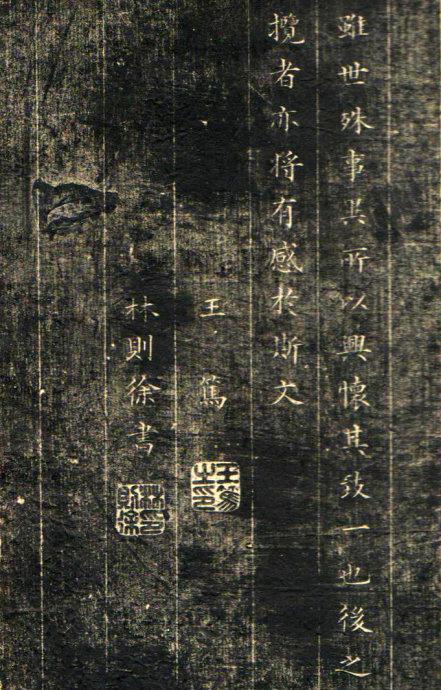 雖世殊事異所以興懷其致一也後之
攬者亦将有感於斯文
王篤
王篤之印
林則徐書